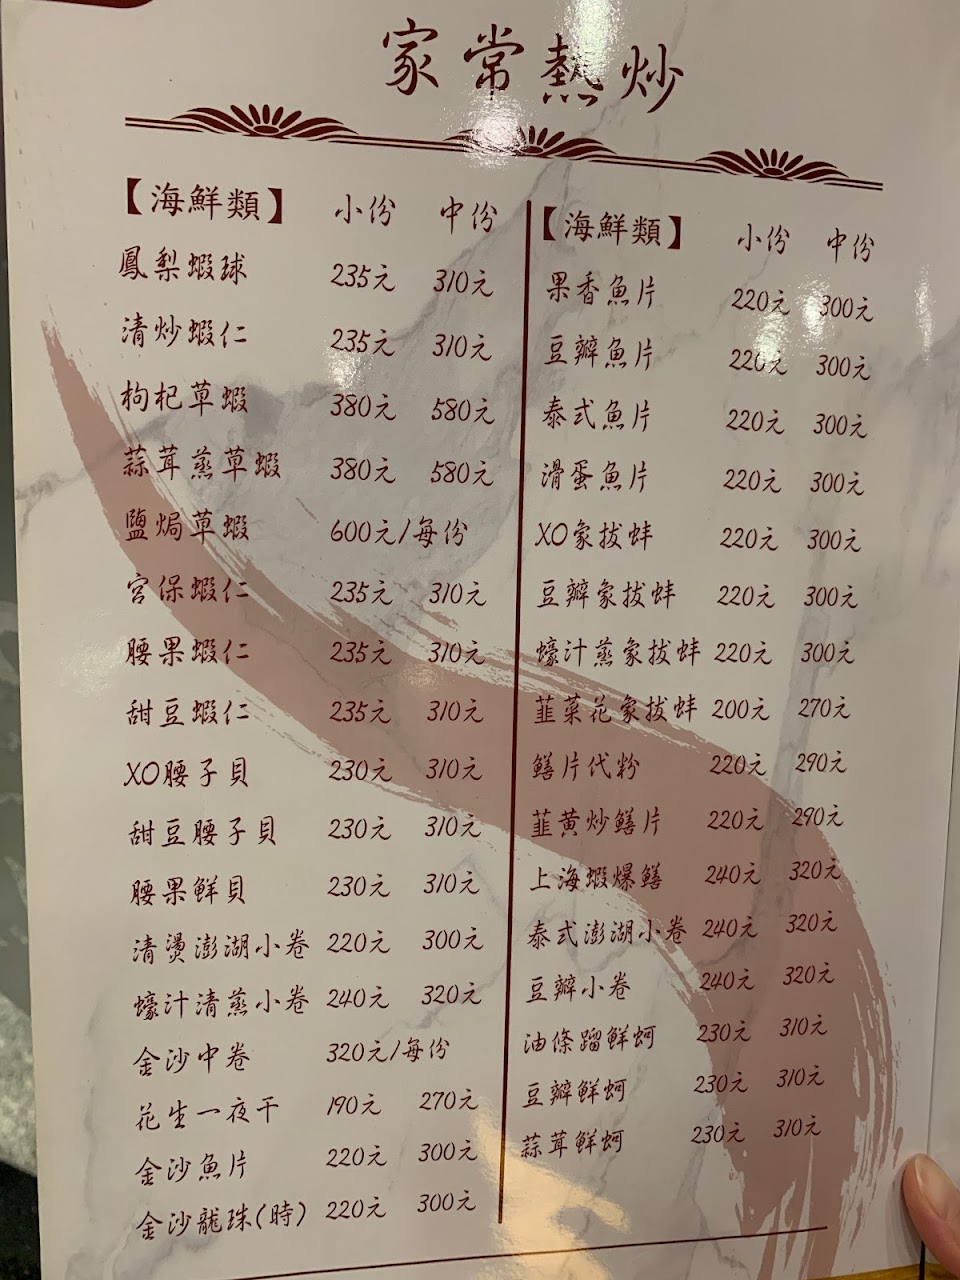 家常熱炒
【海鮮類】 小份 中份
鳳梨蝦球 235元 310元
清炒蝦仁 235元 310元
枸杞草蝦 380元 580元
蒜茸蒸草蝦 380元 580元
鹽焗草蝦 600元/每份
宮保蝦仁 235元 310元
腰果蝦仁 235元 310元
甜豆蝦仁 235元 310元
XO腰子貝 230元 310元
甜豆腰子貝 230元 310元
腰果鮮貝 230元 310元
清燙澎湖小卷 220元 300元
蠔汁清蒸小卷 240元 320元
金沙中卷 320元/每份
花生一夜干 190元 270元
金沙魚片 220元 300元
金沙龍珠(時) 220元 300元
【海鮮類】 小份 中份
果香魚片 220元 300元
豆瓣魚片 220元 300元
泰式魚片 220元 300元
滑蛋魚片 220元 300元
XO象拔蚌 220元 300元
豆瓣象拔蚌 220元 300元
蠔汁蒸象拔蚌 220元 300元
韮菜花象拔蚌 200元 270元
鱔片代粉 220元 290元
韮黃炒鱔片 220元 290元
上海蝦爆鱔 240元 320元
泰式澎湖小卷 240元 320元
豆瓣小卷 240元 320元
油條蹓鮮蚵 230元 310元
豆瓣鮮蚵 230元 310元
蒜茸鮮蚵 230元 310元